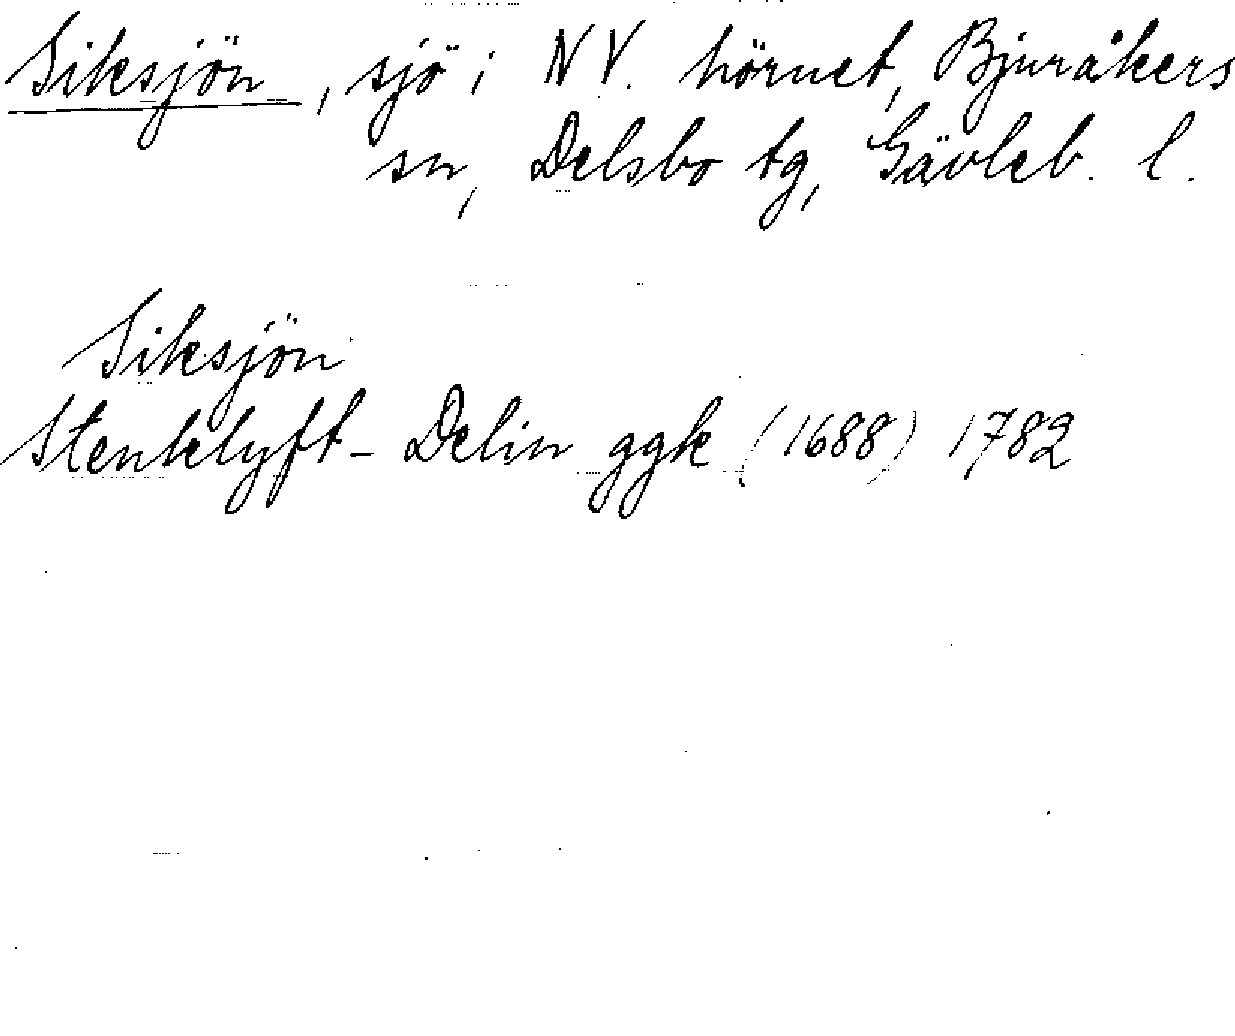 Siksjön, sjö i NV. hörnet, Bjuråkers
sn, Delsbo tg, Gävleb. l.
Siksjön
Stenklyft - Delin ggk (1688) 1782